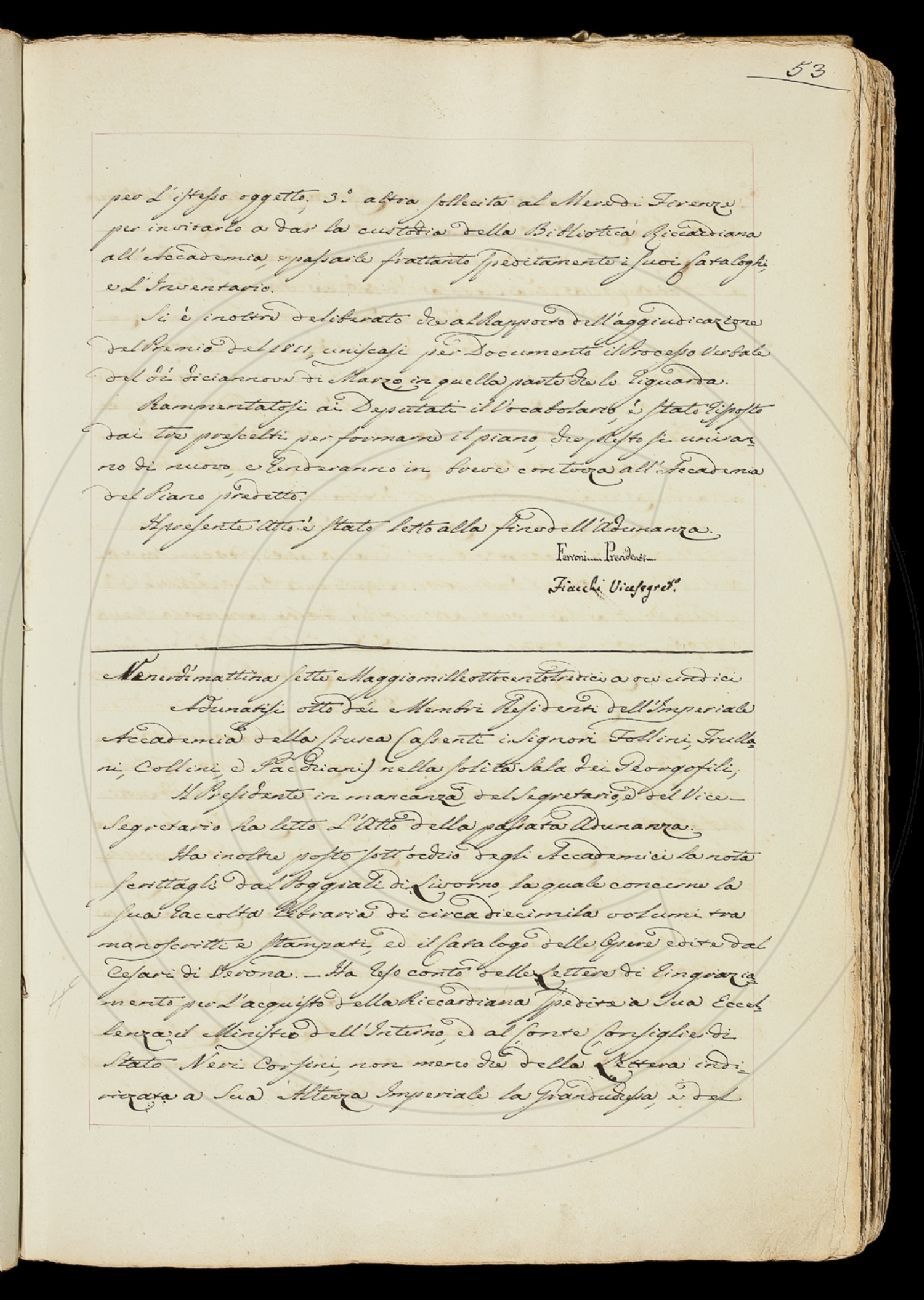 53
per L'istesso oggetto; 3.° altra sollecita al Mere di Firenze
per invitarlo a dar la custodia della Biblioteca Riccardiana
all'Accademia, e passarle frattanto speditamente i suoi Cataloghi,
e L'Inventario.
Si è inoltre deliberato che al Rapporto dell'aggiudicazione
del Premio del 1811, uniscasi per Documento il Processo Verbale
del dì diciannove di Marzo, in quella parte che lo riguarda.
Rammentatosi ai Deputati il Vocabolario, è stato risposto
dai tre prescelti per formarne il piano, che presto si uniran-
no di nuovo, e renderanno in breve contezza all'Accademia
del Piano predetto.
Il presente Atto è stato letto alla fine dell'Adunanza.
Ferroni Presidente
Fiacchi Vicesegret.°
Venerdì mattina sette Maggio mille ottocentotredici a ore undici
Adunatisi otto dei Membri Residenti dell'Imperiale
Accademia della Crusca (assenti i Signori Follini, Frulla-
ni, Collini, e Pacchiani) nella solita Sala dei Georgofili;
Il Presidente in mancanza del Segretario, e del Vice-
Segretario ha letto L'Atto della passata Adunanza.
Ha inoltre posto sott'occhio degli Accademici la nota
scrittagli dal Poggiali di Livorno, la quale concerne la
sua raccolta libraria di circa diecimila volumi tra
manoscritti e stampati, ed il Catalogo delle Opere edite dal
Cesari di Verona. – Ha reso conto delle Lettere di ringrazia
mento per L'acquisto della Riccardiana spedite a Sua Eccel-
lenza il Ministro dell'Interno, ed al Conte Consiglier di
Stato Neri Corsini, non meno che della Lettera indi-
rizzata a Sua Altezza Imperiale la Granduchessa, e del